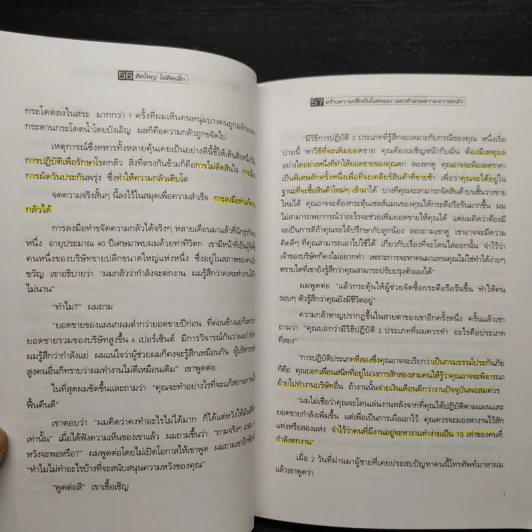 56 คิดใหญ่ ไม่คิดเล็ก
กระโดดลงในสระ มากกว่า 1 ครั้งที่ผมเห็นคนหนุ่มบางคนถูกผลักตกจาก
กระดานกระโดดน้ำโดยบังเอิญ ผลก็คือความกลัวถูกขจัดไป
เหตุการณ์ซึ่งทหารทั้งหลายคุ้นเคยเป็นอย่างดีนี้ชี้ให้เห็นสิ่งหนึ่ง
การปฏิบัติเพื่อรักษาโรคกลัว สิ่งที่ตรงกันข้ามก็คือการไม่ตัดสินใจ
การผัดวันประกันพรุ่ง ซึ่งทำให้ความกลัวเติบโต
จดความจริงสั้นๆ นี้ลงไว้ในสมุดเพื่อความสำเร็จ การลงมือทำ
กลัวได้
การลงมือทำขจัดความกลัวได้จริงๆ หลายเดือนมาแล้วที่นักธุรกิจ
หนึ่ง อายุประมาณ 40 ปีเศษมาพบผมด้วยท่าทีวิตก เขามีหน้าที่เป็น
คนหนึ่งของบริษัทขายปลีกขนาดใหญ่แห่งหนึ่ง ซึ่งอยู่ในสภาพของ
ขวัญ เขาอธิบายว่า “ผมกลัวว่ากำลังจะตกงาน ผมรู้สึกว่าคงจะทำงาน
ไม่นาน”
“ทำไม?” ผมถาม
“ยอดขายของแผนกผมต่ำกว่ายอดขายปีก่อน ที่ค่อนข้างแย่ก็เพราะ
ยอดขายรวมของบริษัทสูงขึ้น 6 เปอร์เซ็นต์ มีการวิจารณ์กันว่า
ผมรู้สึกว่ากำลังแย่ ผมแน่ใจว่าผู้ช่วยผมก็คงจะรู้สึกเหมือนกัน ผู้บริหาร
สูงคนอื่นก็ทราบว่าผมทำงานไม่ดีเหมือนเดิม” เขาพูดต่อ
ในที่สุดผมขัดขึ้นและถามว่า “คุณจะทำอย่างไรที่จะแก้สถานการณ์
ฟื้นคืนดี”
เขาตอบว่า “ผมคิดว่าคงทำอะไรไม่ได้มาก ก็ได้แต่หวังให้มัน
เท่านั้น” เมื่อได้ฟังความเห็นของเขาแล้ว ผมถามขึ้นว่า “ถามจริงๆ
หวังจะพอหรือ?” ผมพูดต่อโดยไม่เปิดโอกาสให้เขาพูด
“ทำไมไม่ทำอะไรบ้างที่จะสนับสนุนความหวังของคุณ”
“พูดต่อสิ” เขาเชื้อเชิญ
57 สร้างความเชื่อมั่นในตนเอง และทำลายความหวาดกลัว
“มีวิธีการปฏิบัติ 2 ประเภทที่รู้สึกจะเหมาะกับกรณีของคุณ หนึ่งเริ่ม
บ่ายนี้ หาวิธีที่จะเพิ่มยอดขาย คุณต้องเผชิญหน้ากับมัน ต้องมีเหตุผล
อย่างใดอย่างหนึ่งที่ทำให้ยอดขายของคุณตก ลองหาดู คุณอาจจะต้องลดราคา
เป็นพิเศษสักครั้งหนึ่งเพื่อที่จะเคลียร์สินค้าที่ขายช้า เพื่อว่าคุณจะได้อยู่ใน
ฐานะที่จะซื้อสินค้าใหม่ๆ เข้ามาได้ บางทีคุณจะสามารถจัดสินค้าบนชั้นวางขาย
ใหม่ได้ คุณอาจจะต้องกระตุ้นเซลส์แมนของคุณให้กระตือรือร้นมากขึ้น ผม
ไม่สามารถพยากรณ์ว่าอะไรจะช่วยเพิ่มยอดขายให้คุณได้ แต่ผมคิดว่าต้องมี
จะเป็นการดีถ้าคุณจะได้ปรึกษากับลูกน้อง ลองถามเขาดู เขาอาจจะมีความ
คิดดีๆ ที่คุณสามารถเอาไปใช้ได้ เกี่ยวกับเรื่องที่จะโดนไล่ออกนั้น จำไว้ว่า
เจ้าของบริษัทก็คงไม่อยากทำ เพราะการจะหาคนมาแทนคุณไม่ใช่ทำได้ง่ายๆ
ตราบใดที่เขายังรู้สึกว่าคุณสามารถปรับปรุงตัวเองได้”
ผมพูดต่อ “แล้วกระตุ้นให้ผู้ช่วยจัดซื้อกระตือรือร้นขึ้น ทำให้คน
รอบๆ ตัวรู้สึกว่าคุณยังมีชีวิตอยู่”
ความกล้าหาญปรากฏขึ้นในสายตาของเขาอีกครั้งหนึ่ง ครั้นแล้วเขา
ถามว่า “คุณบอกว่ามีวิธีปฏิบัติ 2 ประเภทที่ผมควรทำ อะไรคือประเภท
ที่สอง”
“การปฏิบัติประเภทที่สองซึ่งคุณอาจจะเรียกว่าเป็นกรมธรรม์ประกันภัย
ก็คือ คุณบอกเพื่อนสนิทที่อยู่ในวงการสักสองสามคนให้รู้ว่าคุณอาจจะพิจารณา
ย้ายไปทำงานบริษัทอื่น ถ้างานนั้นจ่ายเงินเดือนดีกว่างานปัจจุบันพอสมควร
“ผมไม่เชื่อว่าคุณจะโดนเล่นงานหลังจากที่คุณได้ปฏิบัติตามแผนและ
ยอดขายกำลังเพิ่มขึ้น แต่เพื่อเป็นการเผื่อเอาไว้ คุณควรจะมองหางานไว้สัก
แห่งหรือสองแห่ง จำไว้ว่าคนที่มีงานอยู่จะหางานทำง่ายเป็น 10 เท่าของคนที่
กำลังตกงาน”
เมื่อ 2 วันที่ผ่านมาผู้ชายที่เคยประสบปัญหาคนนี้โทรศัพท์มาหาผม
แล้วเขาพูดว่า